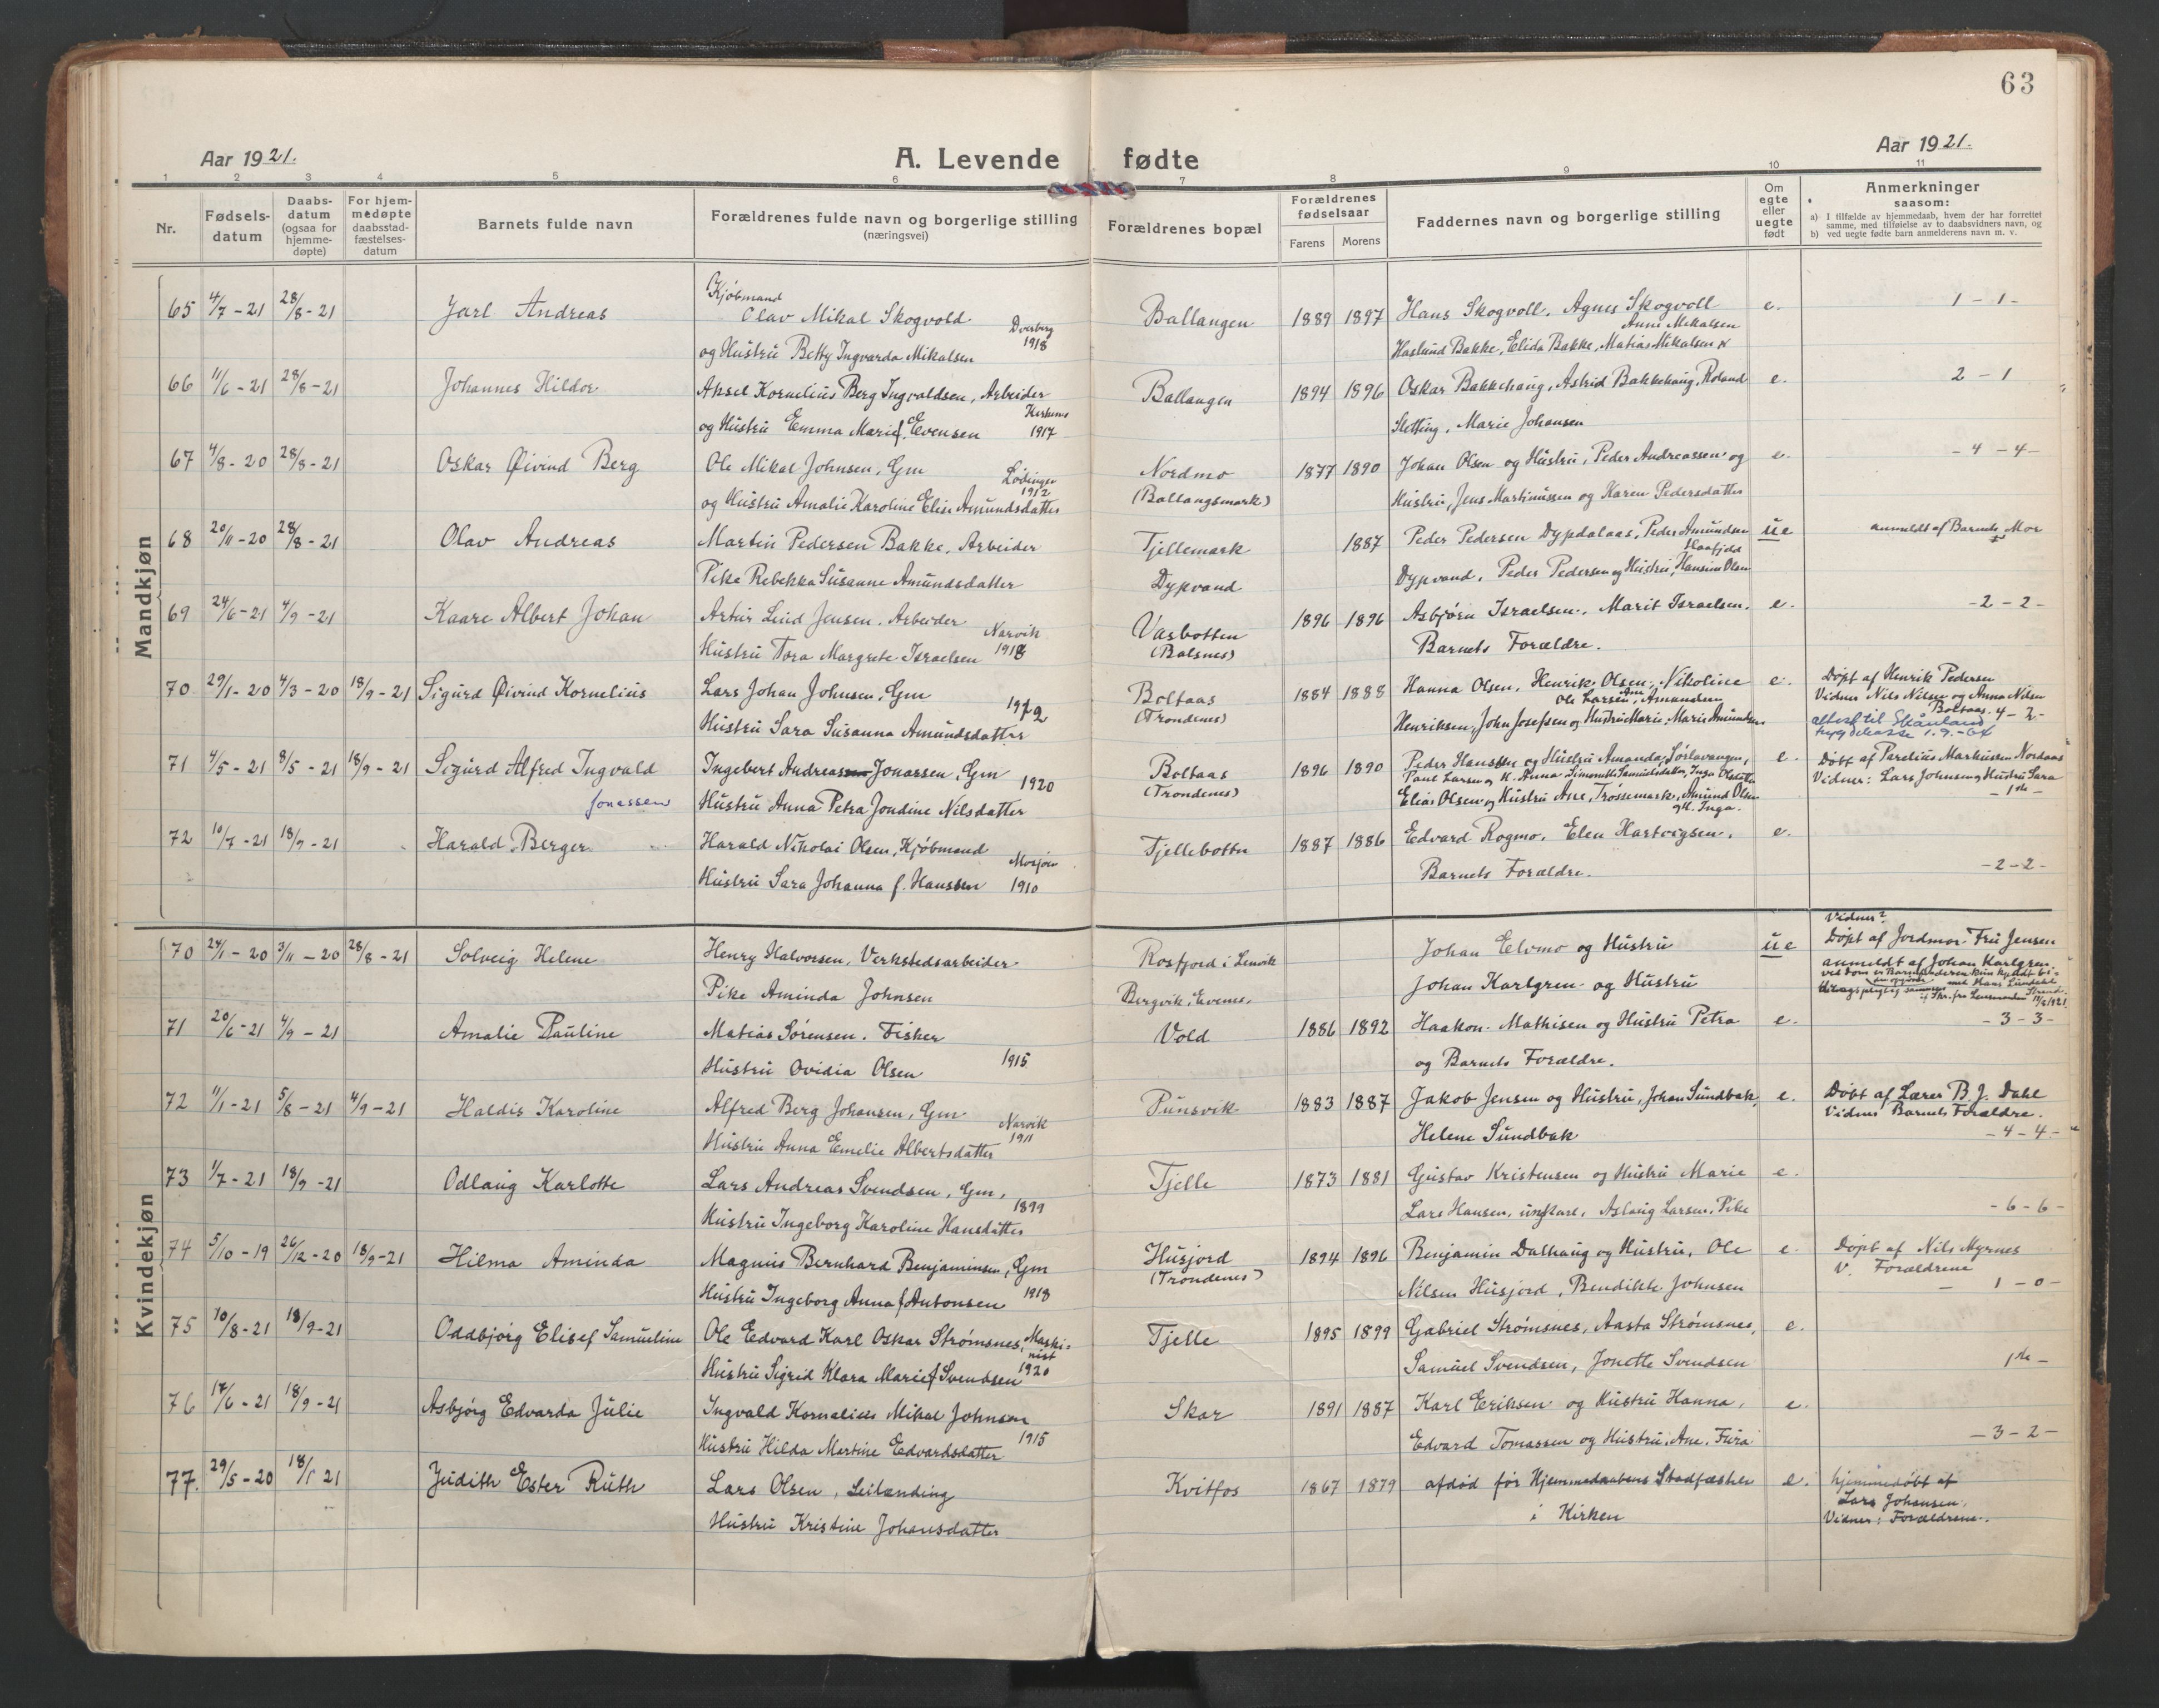 63
Aar 1921.
A. Levende fødte
Aar 1921.
1 2 3 4 5 6 7 8 9 10 11
Nr.
Fødsels-
datum
Daabs-
datum
(ogsaa for
hjemme-
døpte)
For hjem-
medøpte
daabsstad-
fæstelses-
datum
Barnets fulde navn
Forældrenes fulde navn og borgerlige stilling
(næringsvei)
Forældrenes bopæl
Forældrenes
fødselsaar
Farens Morens
Faddernes navn og borgerlige stilling
Om
egte
eller
uegte
født
Anmerkninger
saasom:
a) I tilfælde av hjemmedaab, hvem der har forrettet
samme, med tilføielse av to daabsvidners navn, og
b) ved uegte fødte barn anmelderens navn m. v.
Mandkjøn
65 4/7-21 28/8-21 Jarl Andreas Kjøbmand Olav Mikal Skogvold Dverberg 1918 Ballangen 1889 1897 Hans Skogvoll, Agnes Skogvoll e. 1-1-
Anni Mikalsen
og Hustru Betty Ingvarda Mikalsen Haslund Bakke, Elida Bakke, Matias Mikalsen
66 11/6-21 28/8-21 Johannes Hildor Aksel Kornelius Berg Ingvaldsen, Arbeider Ballangen 1894 1896 Oskar Bakkehaug, Astrid Bakkehaug, Roland e. 2-1
og Hustru Emma Marie f. Evensen 1917 Sletting, Marie Johansen
67 4/8-20 28/8-21 Oskar Øivind Berg Ole Mikal Johnsen, Gm Lødingen 1912 Nordmo 1877 1890 Johan Olsen og Hustru, Peder Andreassen og e. -4-4-
og Hustru Amalie Karoline Elise Amundsdatter (Ballangsmark) Hustru, Jens Martinussen og Karen Pedersdatter
68 20/11-20 28/8-21 Olav Andreas Martin Pedersen Bakke, Arbeider Tjellemark 1887 Peder Pedersen Dypdalaas, Peder Amundsen ue anmeldt af Barnets Mor
Pike Rebekka Susanne Amundsdatter Dypvand Dypvand, Peder Pedersen og Hustru, Hansine Olsen
69 24/6-21 4/9-21 Kaare Albert Johan Artur Lind Jensen, Arbeider Narvik 1918 Vasbotten 1896 1896 Asbjørn Israelsen, Marit Israelsen. e. -2-2-
Hustru Tora Margrete Israelsen (Balsnes) Barnets Forældre.
70 29/1-20 4/3-20 18/9-21 Sigurd Øivind Kornelius Lars Johan Johnsen, Gm 1912 Boltaas 1884 1888 Hanna Olsen, Henrik Olsen, Nikoline e. Døpt af Henrik Pedersen
Ole Larsen, Ane Amundsen Vidner Nils Nilsen og Anna Nilsen
Boltaas. 4-2-
Hustru Sara Susanna Amundsdatter (Trondenes) Henriksen, John Josefsen og Hustru Marie, Marie Amundsen attest til Skånland
trygdekasse 1.9.-64
71 4/5-21 8/5-21 18/9-21 Sigurd Alfred Ingvald Ingebert Andreas Jonassen, Gm 1920 Boltaas 1896 1890 Peder Hanssen og Hustru Amanda, Sørlavangen, e. Døbt af Parelius Markussen Nordaas
Paul Larsen og H. Anna Simonette Samuelsdatter, Inga Olsdatter Vidner: Lars Johnsen og Hustru Sara
Jonassen Hustru Anna Petra Jondine Nilsdatter (Trondenes) Elias Olsen og Hustru Ane, Trøssemark, Amund Olsen -1ste-
og H. Inga.
72 10/7-21 18/9-21 Harald Berger Harald Nikolai Olsen, Kjøbmand Mosjøen 1910 Tjellebotten 1887 1886 Edvard Rogmo, Elen Hartvigsen, e.
Hustru Sara Johanna f. Hanssen Barnets Forældre. -2-2-
Kvindekjøn
Vidner?
70 24/1-20 3/11-20 28/8-21 Solveig Helene Henry Halvorsen, Verkstedsarbeider Rosfjord i Lenvik Johan Elvmo og Hustru ue Døpt af Jordmor Fru Jensen
anmeldt af Johan Karlgren.
Pike Aminda Johnsen Bergvik, Evenes. Johan Karlgren og Hustru
71 20/6-21 4/9-21 Amalie Pauline Matias Sørensen, Fisker Vold 1886 1892 Haakon Mathisen og Hustru Petra e. -3-3-
Hustru Ovidia Olsen 1915 og Barnets Forældre.
72 11/1-21 5/8-21 4/9-21 Haldis Karoline Alfred Berg Johansen, Gm Narvik 1911 Punsvik 1883 1887 Jakob Jensen og Hustru, Johan Sundbak, e. Døbt af Lærer B. J. Dahl
Vidner Barnets Forældre.
Hustru Anna Emelie Albertsdatter Helene Sundbak -4-4-
73 1/7-21 18/9-21 Odlaug Karlotte Lars Andreas Svendsen, Gm, 1899 Tjelle 1873 1881 Gustav Kristensen og Hustru Marie e.
Hustru Ingeborg Karoline Hansdatter Lars Hansen, ungkarl, Aslaug Larsen, Pike -6-6-
74 5/10-19 26/12-20 18/9-21 Hilma Aminda Magnus Bernhard Benjaminsen, Gm Husjord 1894 1896 Benjamin Dalhaug og Hustru, Ole e. Døpt af Nils Myrnes
V. Forældrene
Hustru Ingeborg Anna f Antonsen 1918 (Trondenes) Nilsen Husjord, Bendikte Johnsen - 1-0-
75 10/8-21 18/9-21 Oddbjørg Elisef Samueline Ole Edvard Karl Oskar Strømsnes, Maskinist Tjelle 1895 1899 Gabriel Strømsnes, Aasta Strømsnes, e.
Hustru Sigrid Klara Marie f Svendsen 1920 Samuel Svendsen, Jonette Svendsen 1ste-
76 17/6-21 18/9-21 Asbjørg Edvarda Julie Ingvald Kornelius Mikal Johnsen Skar 1891 1887 Karl Eriksen og Hustru Hanna, e.
Hustru Hilda Martine Edvardsdatter 1915 Edvard Tomassen og Hustru, Ane, Fura -3-2-
77. 29/5-20 18/1 21 Judith Ester Ruth Lars Olsen, Leilænding Kvitfos 1867 1879 afdød før Hjemmedaabens Stadfæstelse e. hjemmedøbt af
Lars Johansen,
Hustru Kristine Johansdatter i Kirken Vidner: Forældrene.